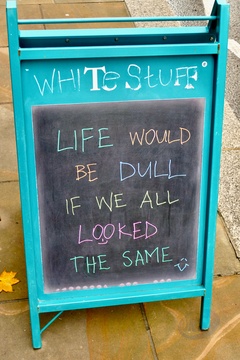 WHITE STUFF
LIFE WOULD
BE DULL
IF WE ALL
LOOKED
THE SAME